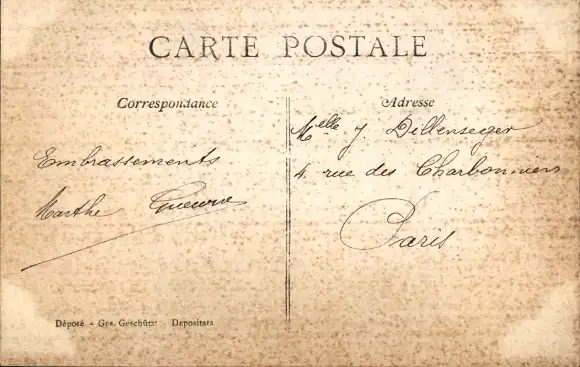 CARTE POSTALE
Correspondance
Embrassements
Marthe
Adresse
Melle J Dillenseger
4 rue des Charbonniers
Paris
Déposé - Ges. Geschützt Depositata